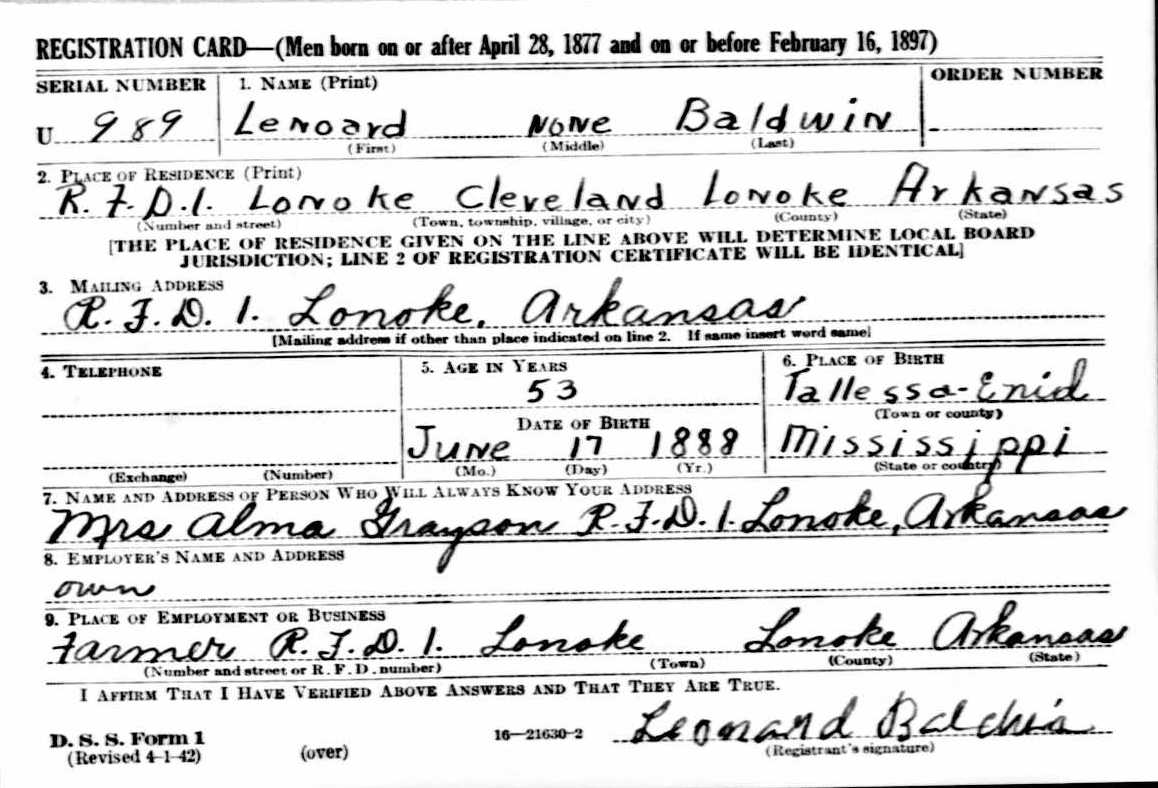 REGISTRATION CARD—(Men born on or after April 28, 1877 and on or before February 16, 1897)
SERIAL NUMBER 1. NAME (Print) ORDER NUMBER
U 989 Lenoard NONE Baldwin
(First) (Middle) (Last)
2. PLACE OF RESIDENCE (Print)
R.F.D.1. Lonoke Cleveland Lonoke Arkansas
(Number and street) (Town, township, village, or city) (County) (State)
[THE PLACE OF RESIDENCE GIVEN ON THE LINE ABOVE WILL DETERMINE LOCAL BOARD
JURISDICTION; LINE 2 OF REGISTRATION CERTIFICATE WILL BE IDENTICAL]
3. MAILING ADDRESS
R.F.D. 1. Lonoke, Arkansas
[Mailing address if other than place indicated on line 2. If same insert word same]
4. TELEPHONE 5. AGE IN YEARS 6. PLACE OF BIRTH
53 Tallessa-Enid
(Town or county)
DATE OF BIRTH
June 17 1888 Mississippi
(Exchange) (Number) (Mo.) (Day) (Yr.) (State or country)
7. NAME AND ADDRESS OF PERSON WHO WILL ALWAYS KNOW YOUR ADDRESS
Mrs Alma Grayson R.F.D.1. Lonoke, Arkansas
8. EMPLOYER'S NAME AND ADDRESS
own
9. PLACE OF EMPLOYMENT OR BUSINESS
Farmer R.F.D.1. Lonoke Lonoke Arkansas
(Number and street or R. F. D. number) (Town) (County) (State)
I AFFIRM THAT I HAVE VERIFIED ABOVE ANSWERS AND THAT THEY ARE TRUE.
D. S. S. Form 1
(Revised 4-1-42) (over) 16—21630-2 Leonard
(Registrant's signature)